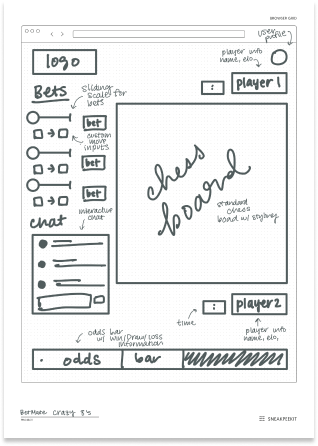 BROWSER GRID
user
profile
logo
player info
name, elo,
player 1
:
Bets
sliding
scale for
bets
bet
custom
move
inputs
bet
bet
chess
board
standard
chess
board w/ styling
interactive
chat
chat
:
player2
time
player info
name, elo,
odds bar
w/ win/draw/loss
information
odds bar
Crazy 8's
SNEAKPEEKIT